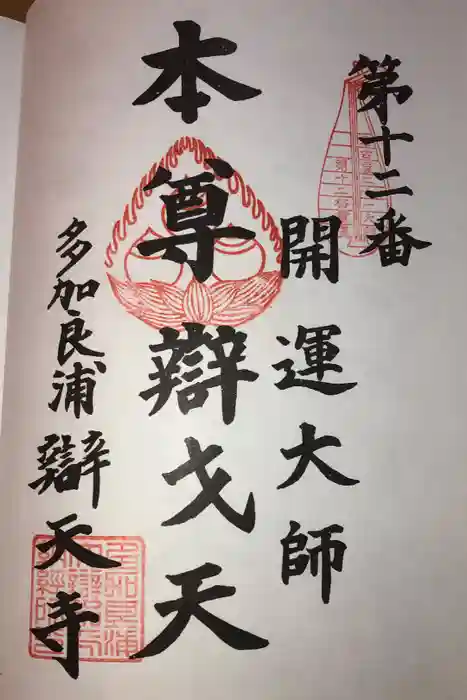 第十二番
開運大師
本尊辯才天
多加良浦
辯天寺